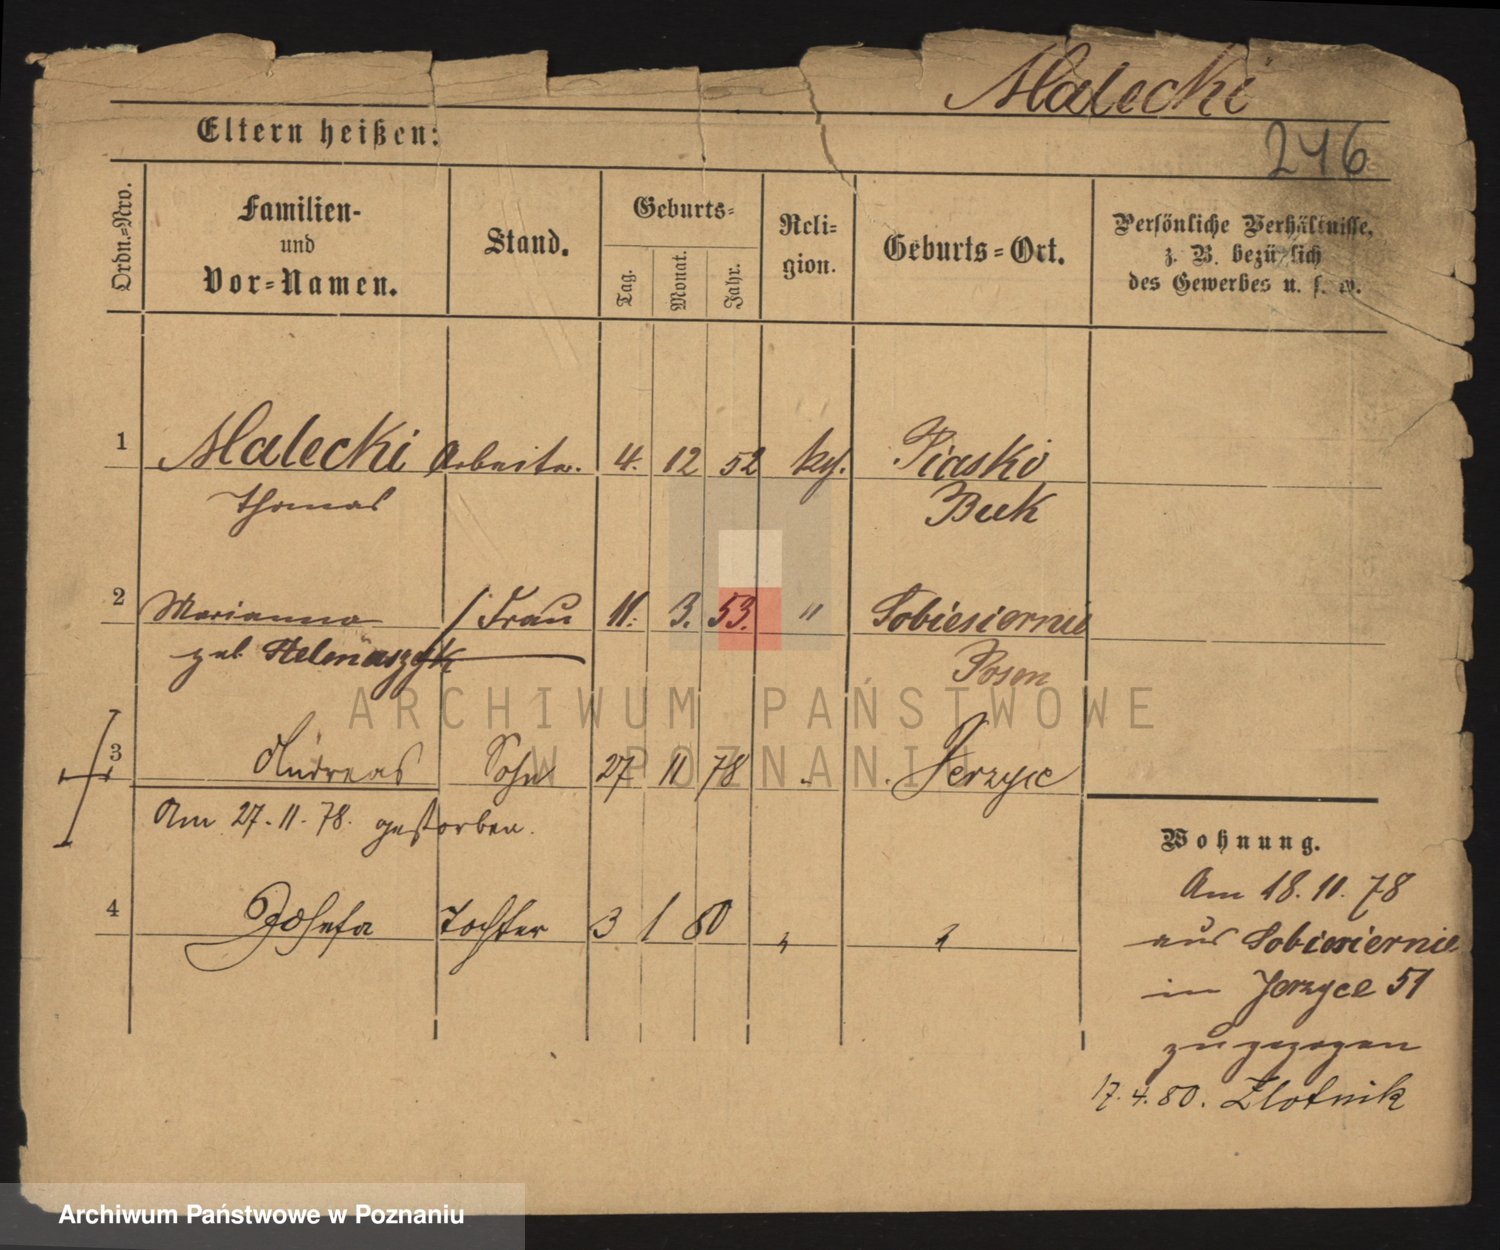 Malecki
246
Eltern heißen:
Ordn.-Nro.
Familien-
und
Vor-Namen.
Stand.
Geburts-
Tag.
Monat.
Jahr.
Reli-
gion.
Geburts-Ort.
Persönliche Verhältnisse,
z. B. bezüglich
des Gewerbes u. s. w.
1 Malecki Arbeiter. 4. 12 52 kth. Piaski
Thomas Buk
2 Marianna Frau 11. 3. 53. " Sobiesiernie
geb Helenaszyk Posen
3 Andreas Sohn 27 11 78 " Jerzyce
Am 27.11.78. gestorben.
4 Josefa Tochter 3 1 80 " "
Wohnung.
Am 18.11.78
aus Sobiesiernie
in Jerzyce 51
zugezogen
17.4.80. Zlotnik
ARCHIWUM PAŃSTWOWE
W POZNANIU
Archiwum Państwowe w Poznaniu